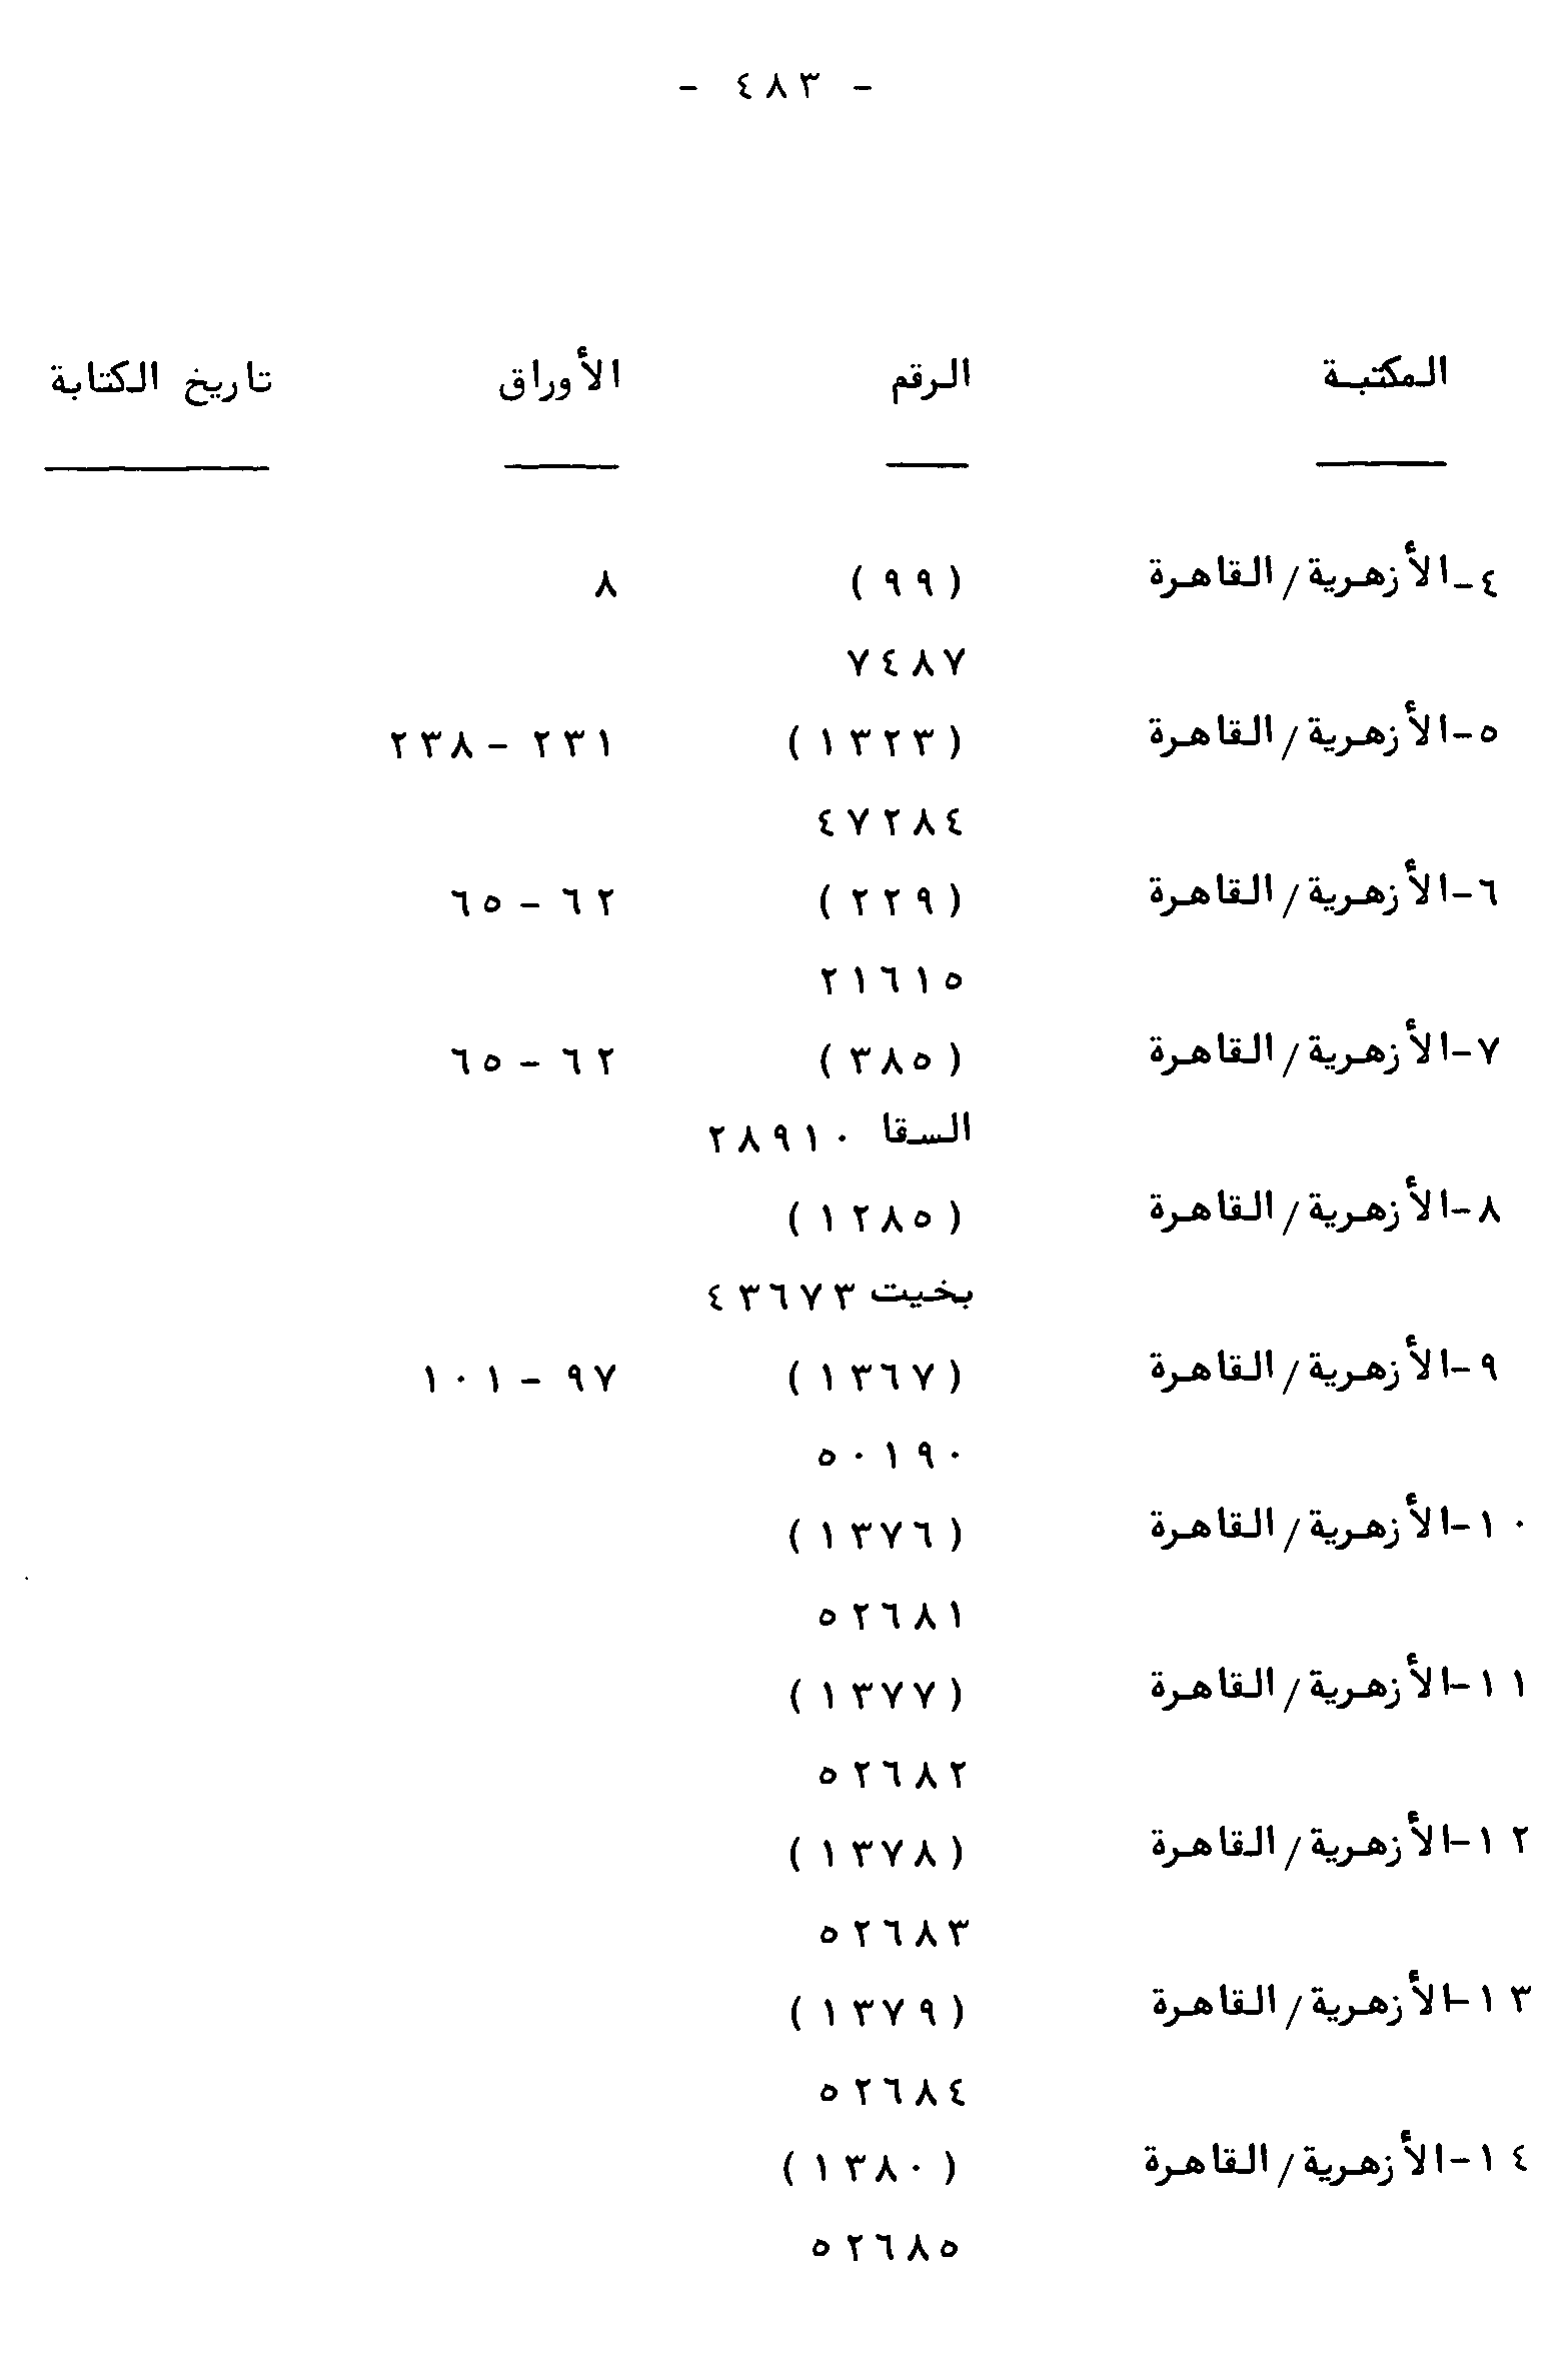 - ٤٨٣ -
المكتبة الرقم الأوراق تاريخ الكتابة
٤-الأزهرية/القاهرة (٩٩) ٨
٧٤٨٧
٥-الأزهرية/القاهرة (١٣٢٣) ٢٣١ - ٢٣٨
٤٧٢٨٤
٦-الأزهرية/القاهرة (٢٢٩) ٦٢ - ٦٥
٢١٦١٥
٧-الأزهرية/القاهرة (٣٨٥) ٦٢ - ٦٥
السقا ٢٨٩١٠
٨-الأزهرية/القاهرة (١٢٨٥)
بخيت ٤٣٦٧٣
٩-الأزهرية/القاهرة (١٣٦٧) ٩٧ - ١٠١
٥٠١٩٠
١٠-الأزهرية/القاهرة (١٣٧٦)
٥٢٦٨١
١١-الأزهرية/القاهرة (١٣٧٧)
٥٢٦٨٢
١٢-الأزهرية/القاهرة (١٣٧٨)
٥٢٦٨٣
١٣-الأزهرية/القاهرة (١٣٧٩)
٥٢٦٨٤
١٤-الأزهرية/القاهرة (١٣٨٠)
٥٢٦٨٥